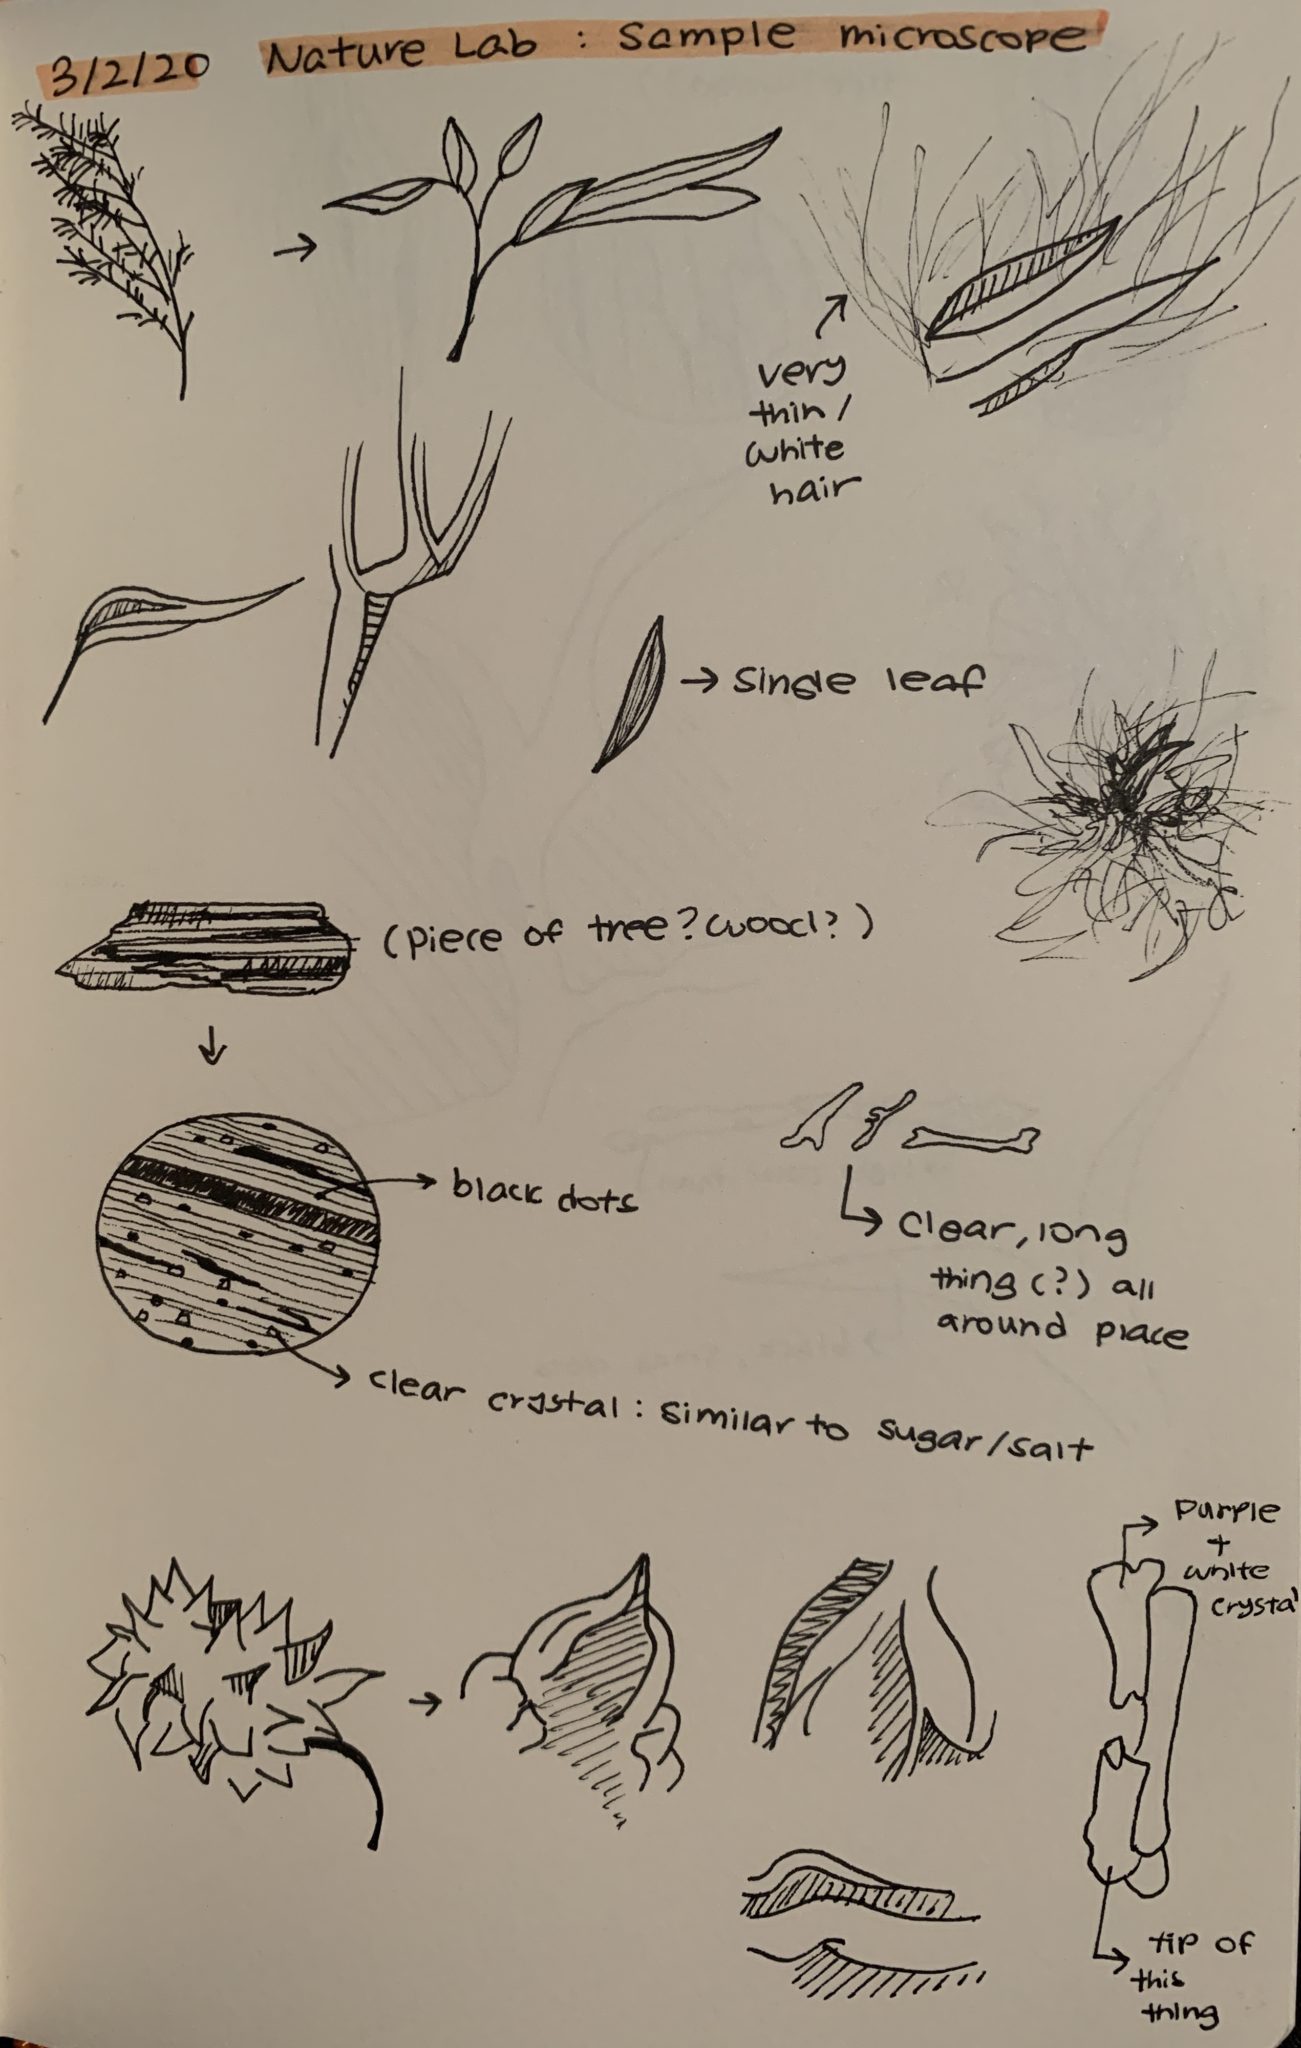 3/2/20 Nature Lab : Sample microscope
very
thin /
white
hair
single leaf
(piece of tree? wood?)
black dots
clear, long
thing (?) all
around place
clear crystal : similar to sugar/salt
purple
+
white
crystal
tip of
this
thing